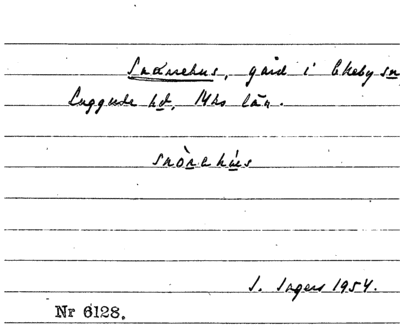 Snärehus, gård i Ekeby sn,
Luggude hd, Mhs län.
snòrehús
I. Ingers 1954.
Nr 6128.